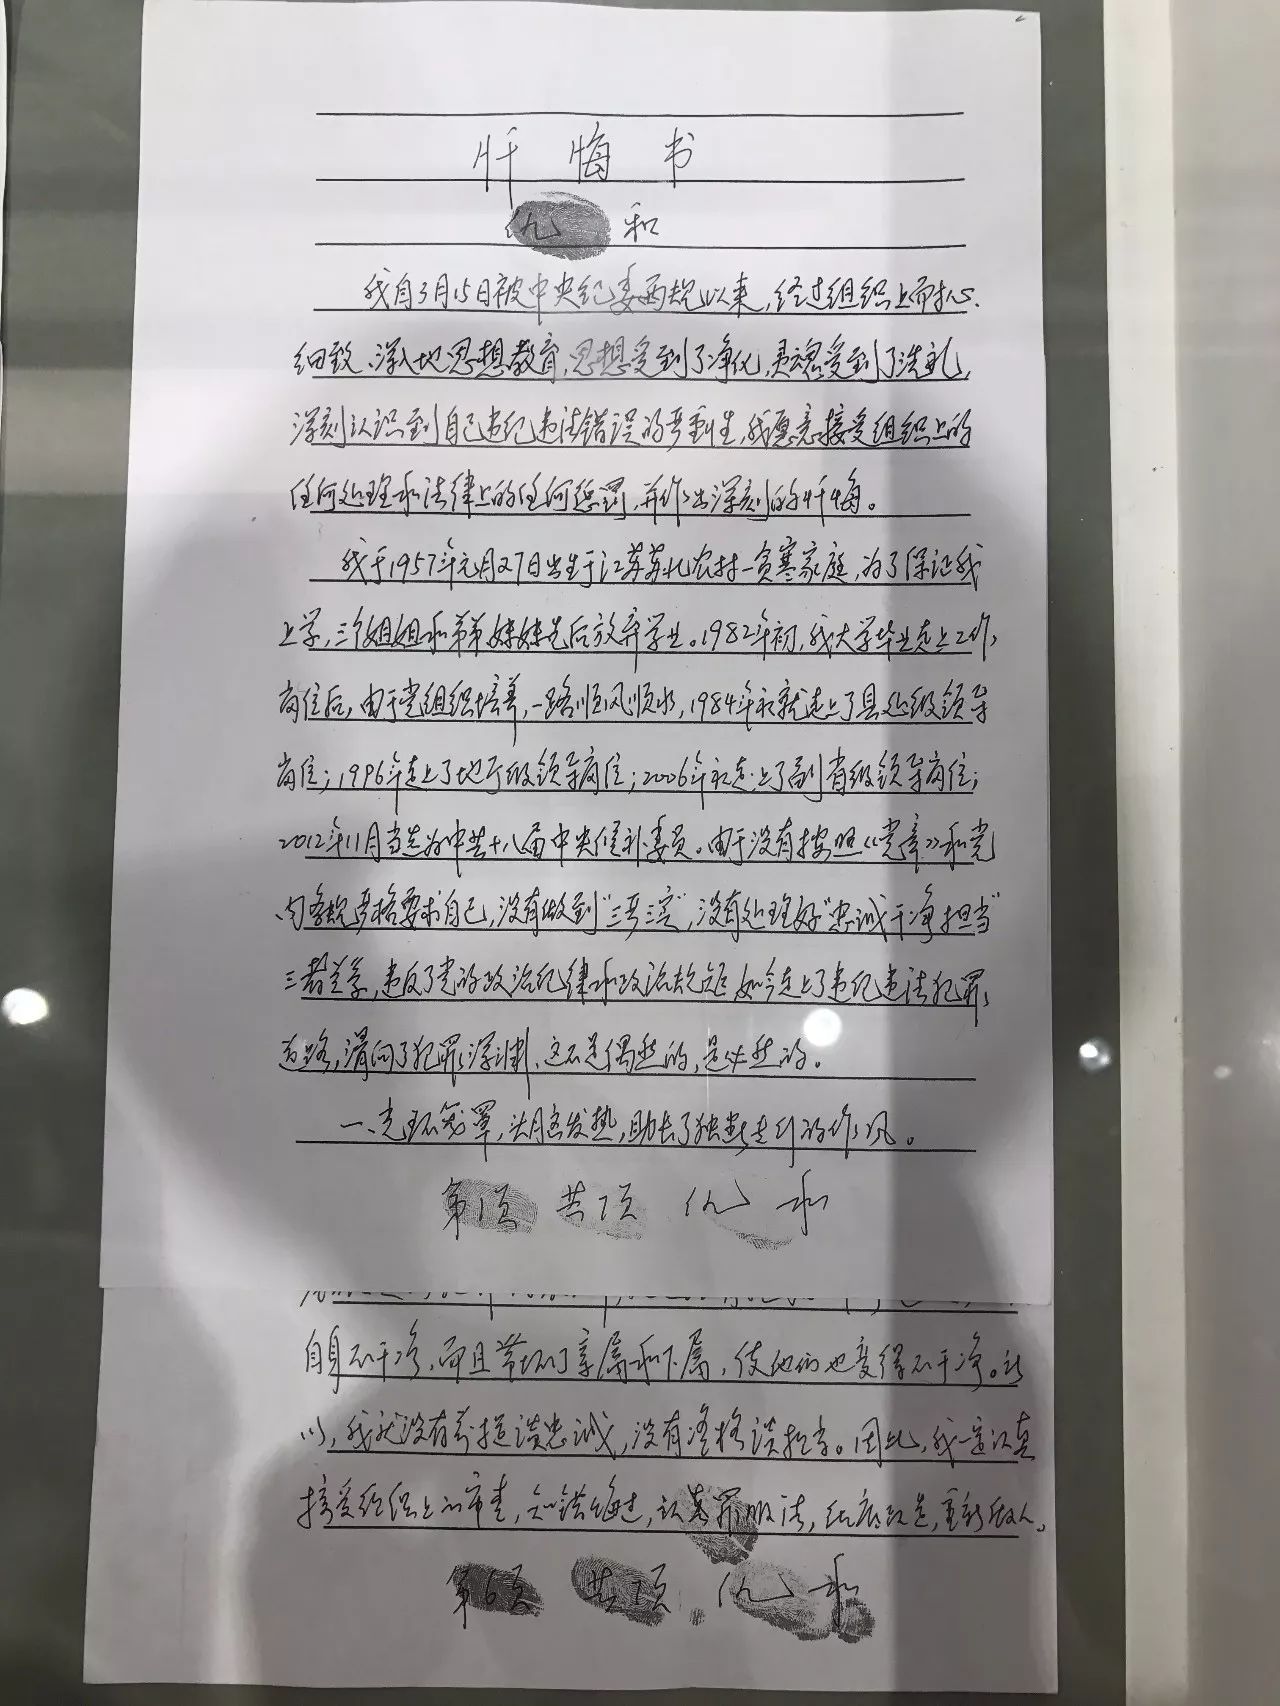 忏悔书
仇和
我自3月15日被中央纪委两规以来,经过组织上耐心、
细致、深入地思想教育,思想受到了净化,灵魂受到了洗礼,
深刻认识到自己违纪违法错误的严重性,我愿意接受组织上的
任何处理和法律上的任何惩罚,并作出深刻的忏悔。
我于1957年元月27日出生于江苏苏北农村一贫寒家庭,为了保证我
上学,三个姐姐和弟弟妹妹先后放弃学业。1982年初,我大学毕业走上工作
岗位后,由于党组织培养,一路顺风顺水,1984年初就走上了县处级领导
岗位;1996年走上了地厅级领导岗位;2006年初走上了副省级领导岗位;
2012年11月当选为中共十八届中央候补委员。由于没有按照《党章》和党
内条规严格要求自己,没有做到“三严三实”,没有处理好“忠诚干净担当”
三者关系,违反了党的政治纪律和政治规矩,如今走上了违纪违法犯罪
道路,滑向了犯罪深渊,这不是偶然的,是必然的。
一、光环笼罩,头脑发热,助长了独断专行的作风。
第1页 共7页 仇和
自身不干净,而且带坏了亲属和下属,使他们也变得不干净。所
以,我就没有资格谈忠诚,没有资格谈担当。因此,我一定认真
接受组织上的审查,知错悔过,认罪服法,彻底改造,重新做人。
第6页 共7页 仇和